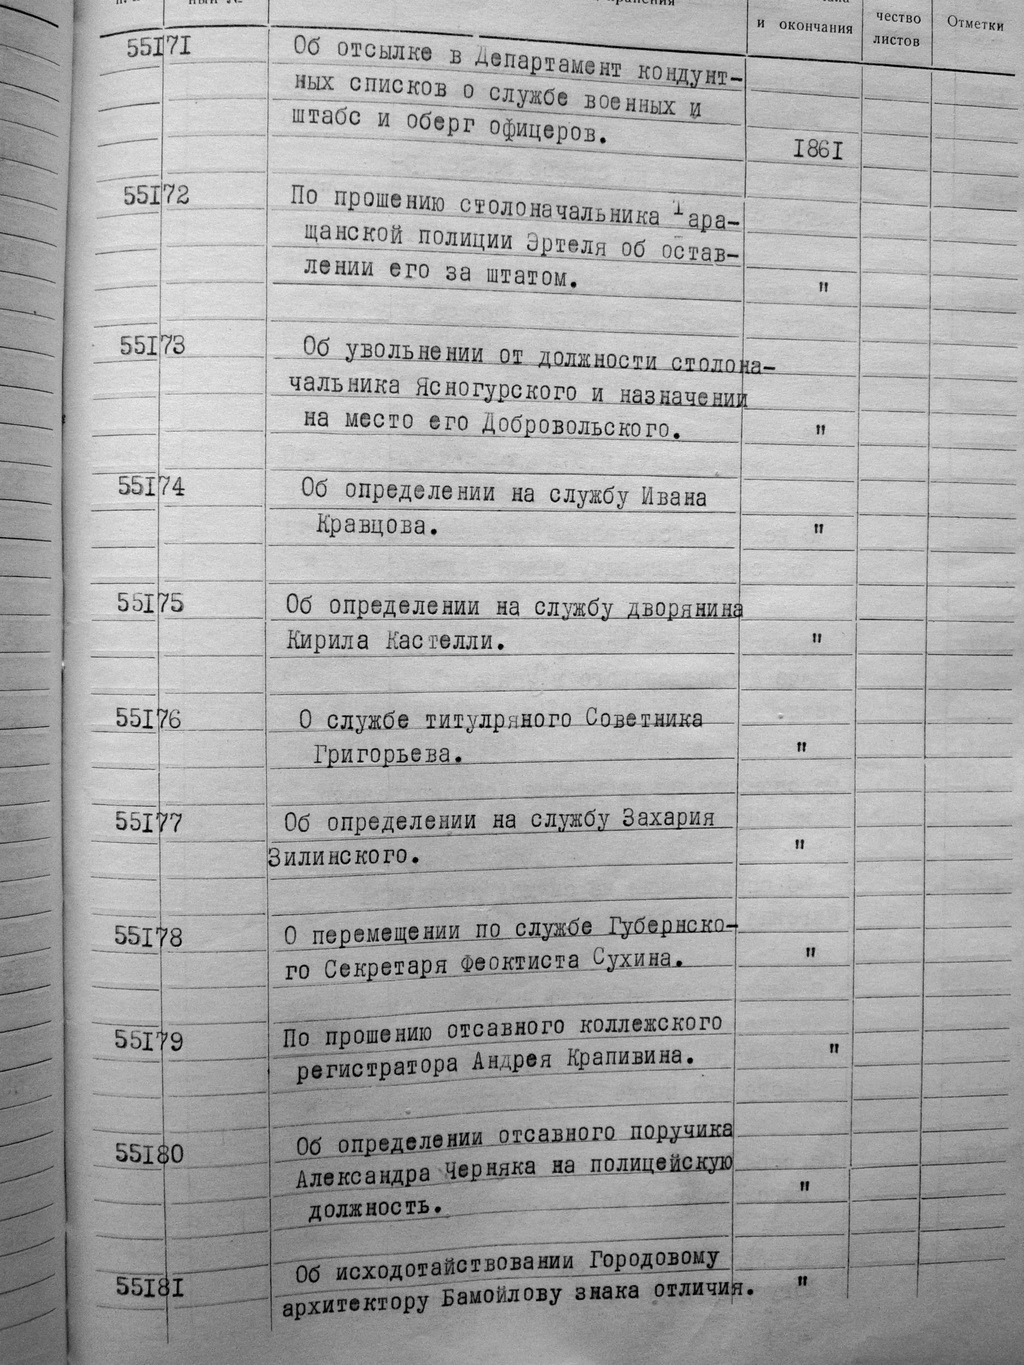 и окончания
чество
листов
Отметки
55171
Об отсылке в Департамент кондуит-
ных списков о службе военных и
штабс и оберг офицеров.
1861
55172
По прошению столоначальника Тара-
щанской полиции Эртеля об остав-
лении его за штатом.
"
55173
Об увольнении от должности столона-
чальника Ясногурского и назначении
на место его Добровольского.
"
55174
Об определении на службу Ивана
Кравцова.
"
55175
Об определении на службу дворянина
Кирила Кастелли.
"
55176
О службе титулряного Советника
Григорьева.
"
55177
Об определении на службу Захария
Зилинского.
"
55178
О перемещении по службе Губернско-
го Секретаря Феоктиста Сухина.
"
55179
По прошению отсавного коллежского
регистратора Андрея Крапивина.
"
55180
Об определении отсавного поручика
Александра Черняка на полицейскую
должность.
"
55181
Об исходотайствовании Городовому
архитектору Бамойлову знака отличия.
"